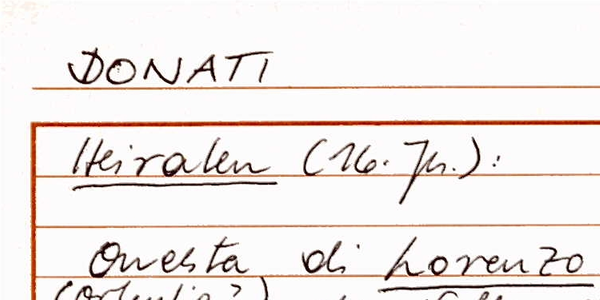 DONATI
Heiraten (16. Jh.):
Onesta di Lorenzo